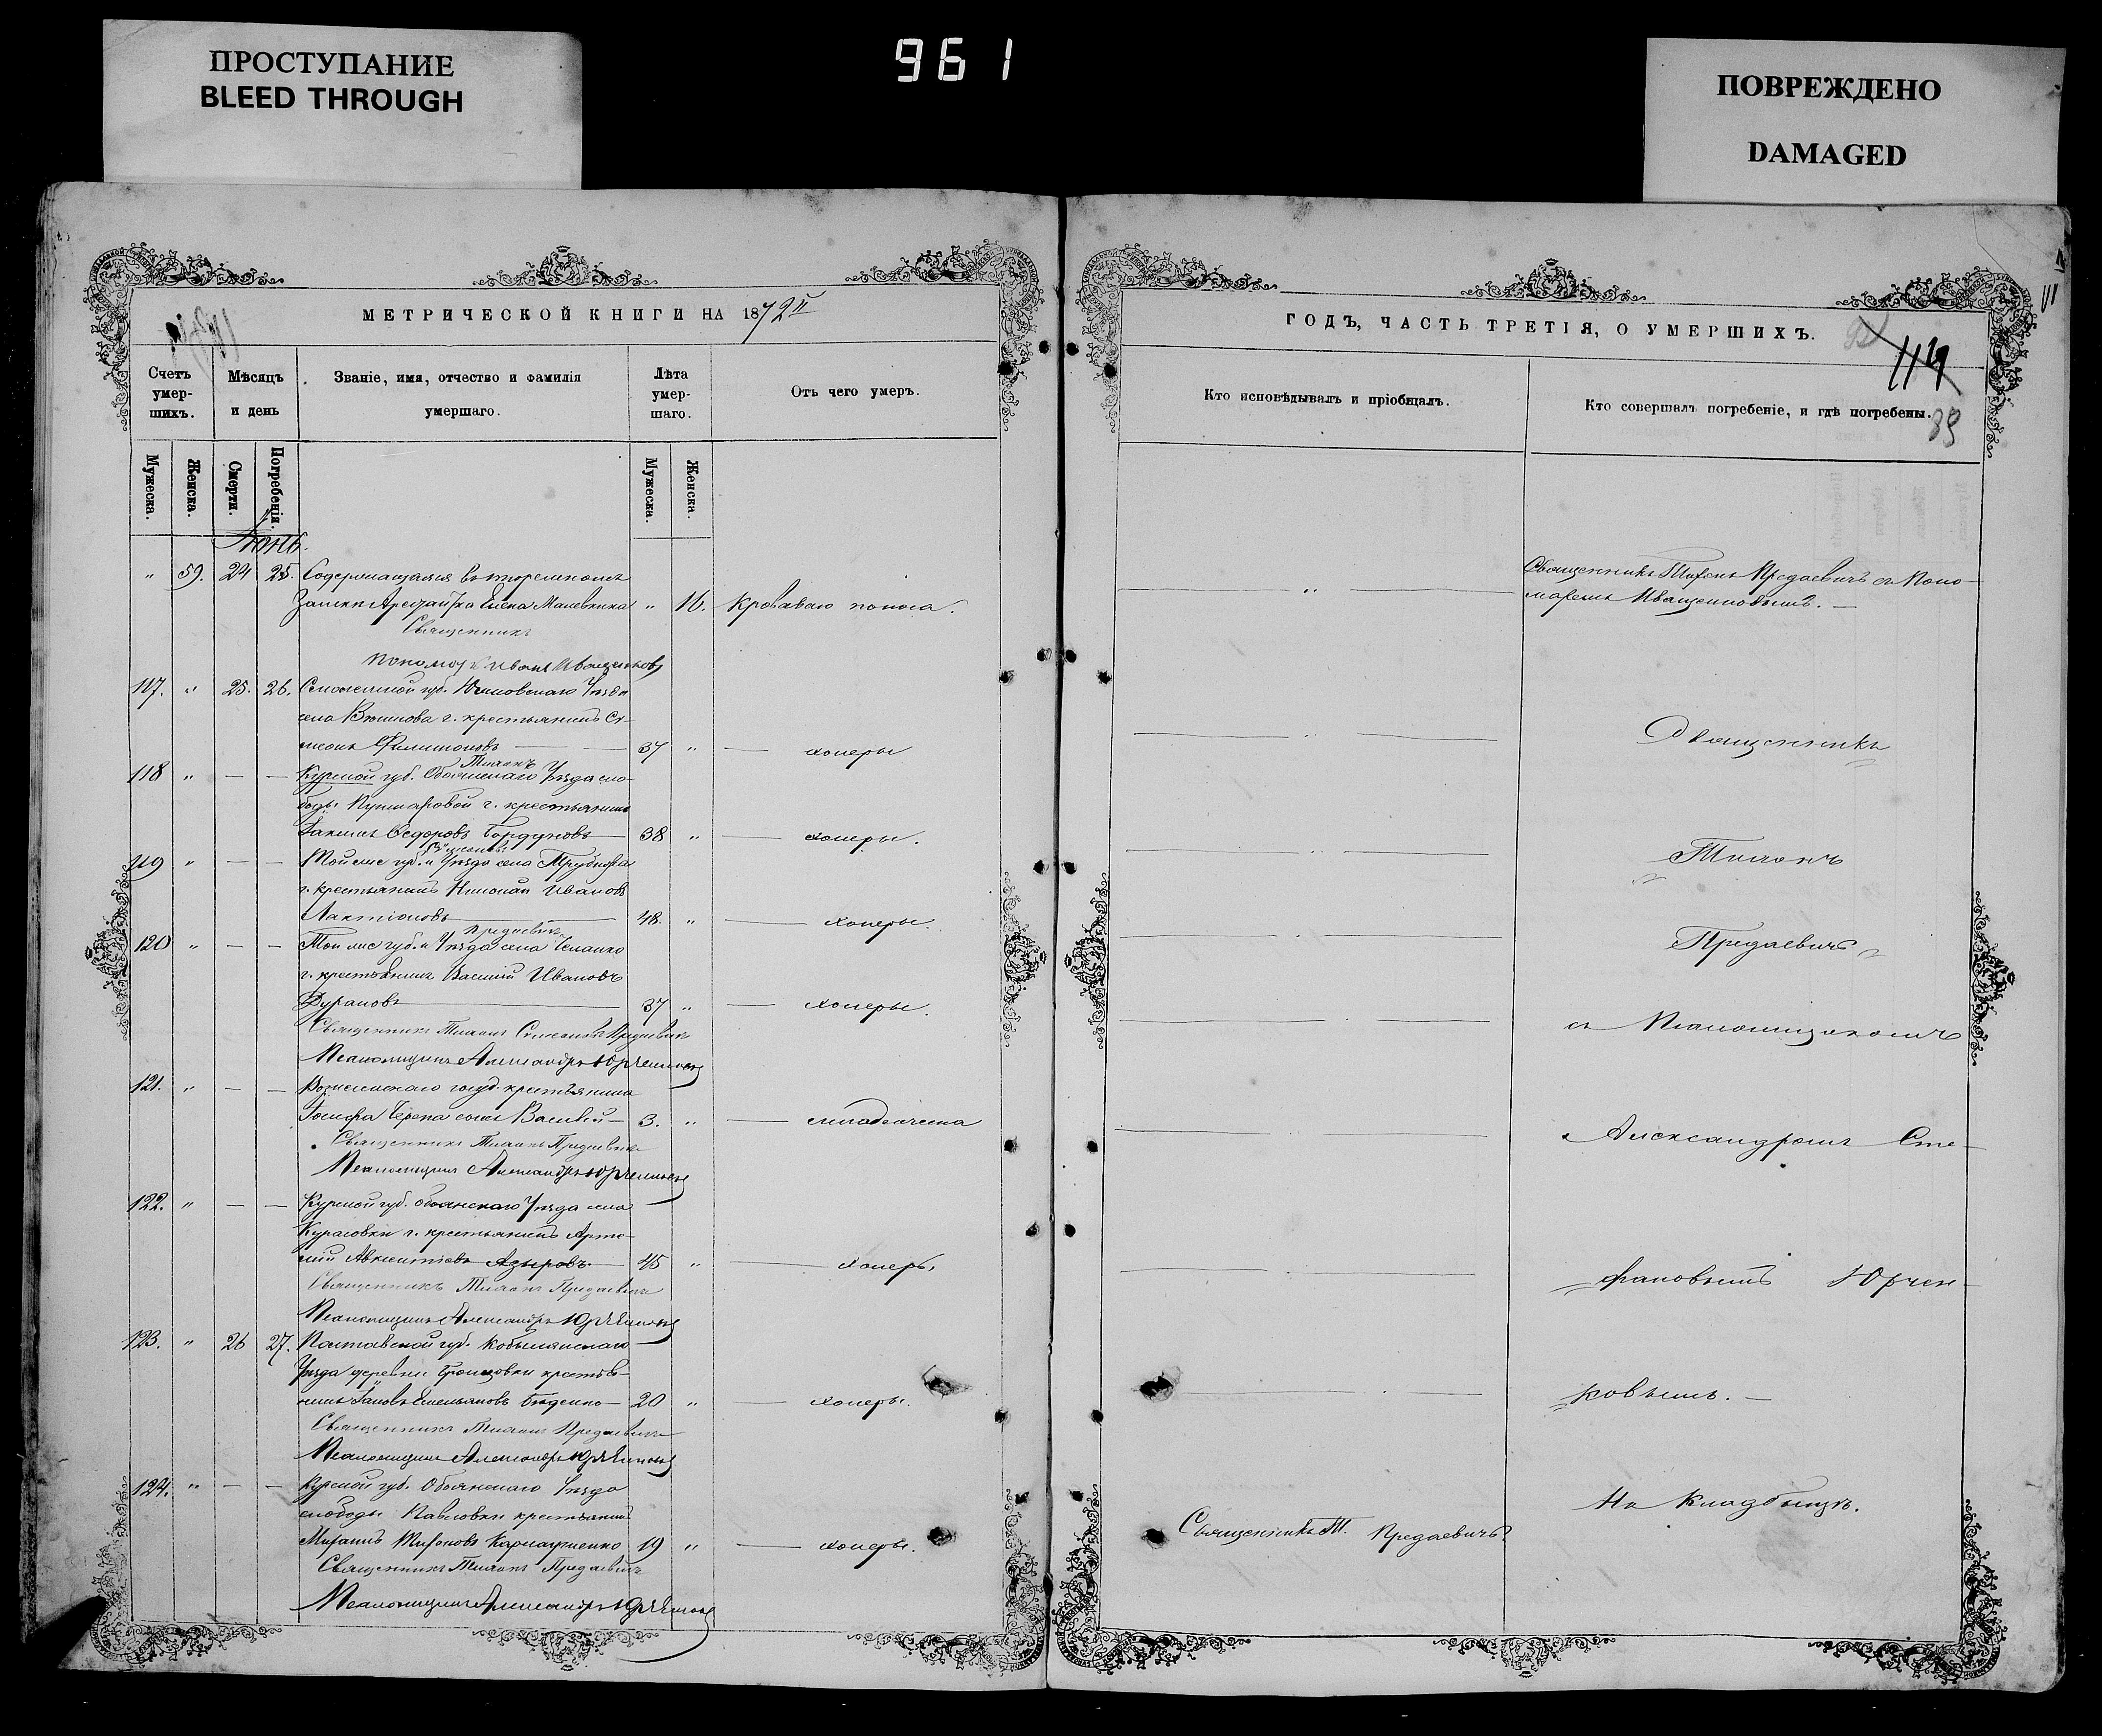 ПРОСТУПАНИЕ
BLEED THROUGH
961
ПОВРЕЖДЕНО
DAMAGED
МЕТРИЧЕСКОЙ КНИГИ НА 1872
Счетъ умер-шихъ.
Мѣсяцъ и день
Званіе, имя, отчество и фамилія умершаго.
Лѣта умер-шаго.
Отъ чего умеръ.
Мужеска.
Женска.
Смерти.
Погребенія.
Мужеска.
Женска.
Іюнь.
" 59. 24 25. Содержащаяся въ тюремномъ
Замкѣ Арестантка Елена " 16. Кроваваго поноса.
Священникъ
Пономарь Иванъ Иващенковъ
117. " 25. 26. Смоленской губ. Юхновскаго Уѣзда
села г. крестьянинъ Си-
меонъ Филимоновъ — 37 " — холеры
Тихонъ
118 " — — Курской губ. Обоянскаго Уѣзда сло-
боды г. крестьянинъ
Іакимъ Ѳедоровъ — 38 " — холеры.
119 " — — Той же губ. и Уѣзда села
г. крестьянинъ Николай Ивановъ
Лактіоновъ — 48. " — холеры.
Предаевичъ
120 " — — Той же губ. и Уѣзда села
г. крестьянинъ Василій Ивановъ
Дурановъ — 37 " — холеры.
Священникъ Тихонъ Симеоновъ Предаевичъ
Псаломщикъ Александръ Юрченковъ
121. " — — Вознесенскаго госуд. крестьянина
Іосифа Черепа сынъ Василій — 3. " — младенческа
Священникъ Тихонъ Предаевичъ
Псаломщикъ Александръ Юрченковъ
122. " — — Курской губ. Обоянскаго Уѣзда села
Курасовки г. крестьянинъ Арте-
мій Авксентіевъ Азыровъ. — 45 " — холеры
Священникъ Тихонъ Предаевичъ
Псаломщикъ Александръ Юрченковъ
123. " 26 27. Полтавской губ. Кобылянскаго
Уѣзда деревни крестья-
нинъ Іаковъ Емельяновъ — 20 " — холеры.
Священникъ Тихонъ Предаевичъ
Псаломщикъ Александръ Юрченковъ
124. " — — Курской губ. Обоянскаго Уѣзда
слободы Павловки крестьянинъ
19 " — холеры.
Священникъ Тихонъ Предаевичъ
Псаломщикъ Александръ Юрченковъ
ГОДЪ, ЧАСТЬ ТРЕТІЯ, О УМЕРШИХЪ.
114
89
Кто исповѣдывалъ и пріобщалъ.
Кто совершалъ погребеніе, и гдѣ погребены.
Священникъ Тихонъ Предаевичъ съ Поно-
маремъ Иващенковымъ. —
Священникъ
Тихонъ
Предаевичъ
съ Псаломщикомъ
Александромъ Сте-
фановымъ Юрчен-
ковымъ. —
На Кладбищѣ.
Священникъ Т. Предаевичъ